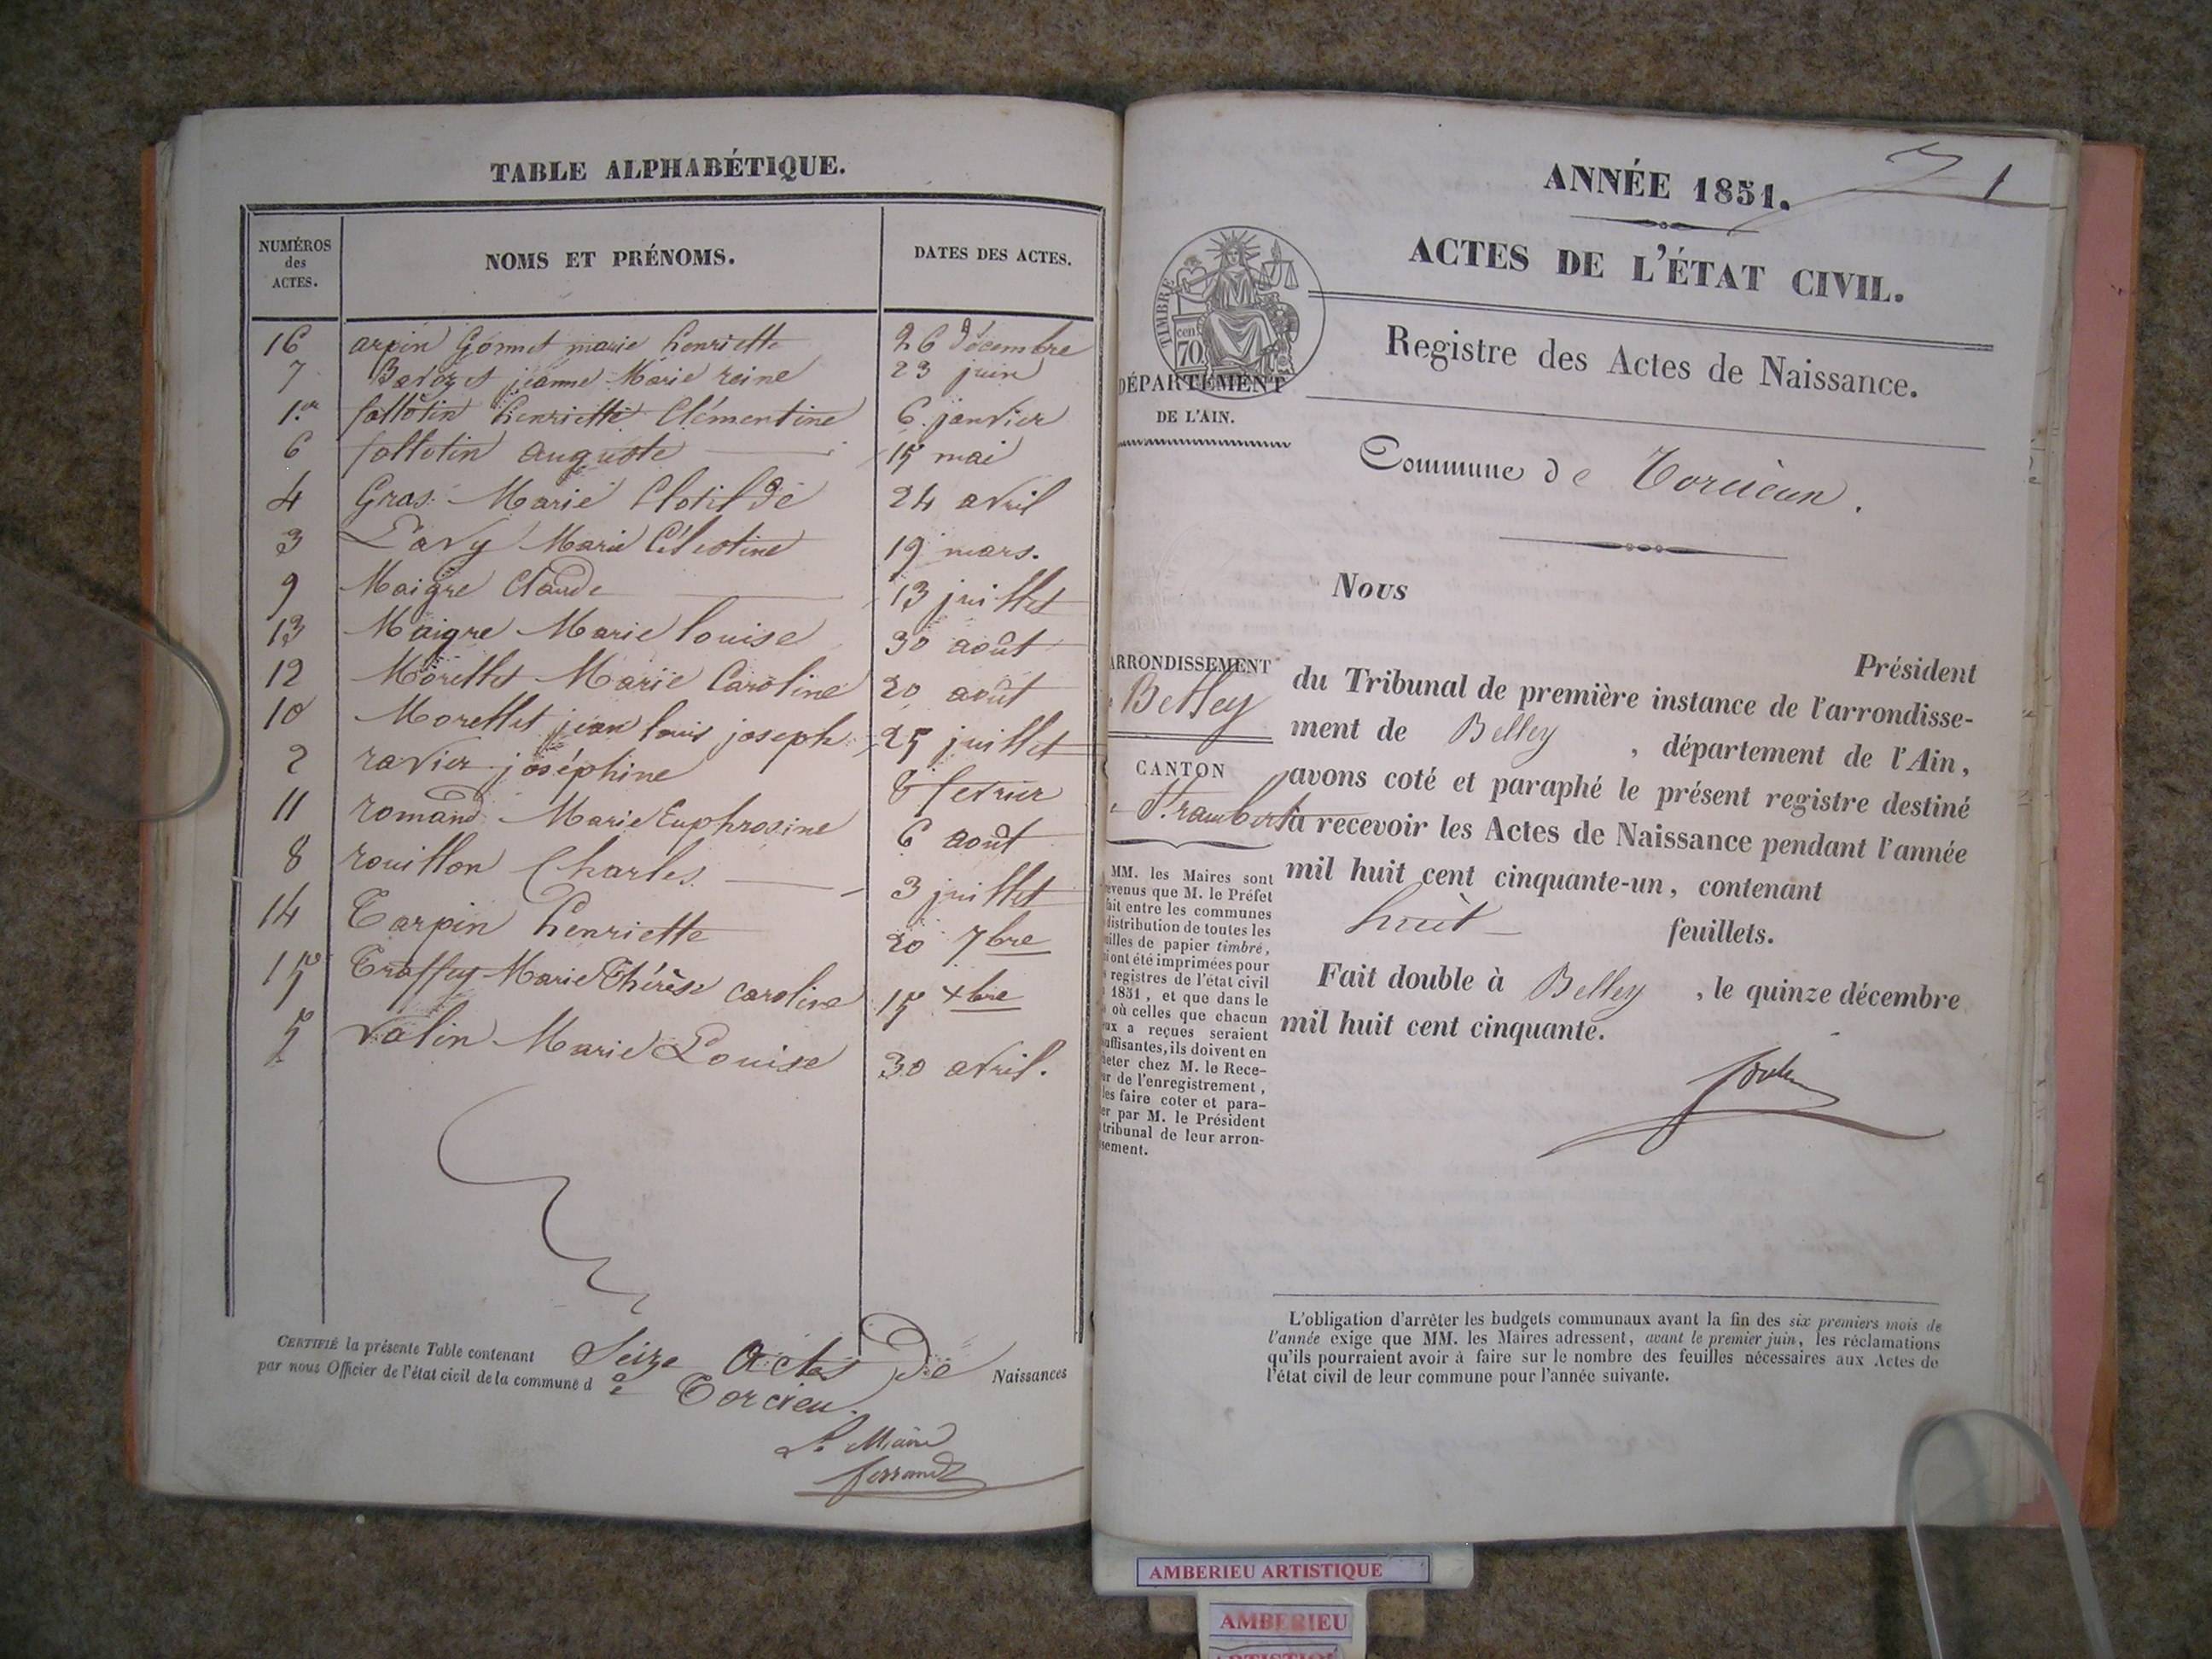 TABLE ALPHABÉTIQUE.
NUMÉROS des ACTES. NOMS ET PRÉNOMS. DATES DES ACTES.
16 arpin Gonnet marie henriette 26 décembre
7 jeanne Marie reine 23 juin
1.er follotin henriette Clémentine 6 janvier
6 follotin auguste 15 mai
4 Gras Marie Clotilde 24 avril
3 Lavy Marie Célestine 19 mars.
9 Maigre Claude 13 juillet
13 Maigre Marie louise 30 août
12 Morellet Marie Caroline 20 août
10 Morellet jean louis joseph 25 juillet
2 ravier joséphine 8 fevrier
11 romand Marie Euphrosine 6 août
8 rouillon Charles 3 juillet
14 Tarpin henriette 20 7bre
15 Traffey Marie Thérèse caroline 15 xbre
5 valin Marie Louise 30 avril.
CERTIFIÉ la présente Table contenant Seize actes De Naissances
par nous Officier de l'état civil de la commune de Torcieu.
Le Maire
ferrand
1
ANNÉE 1851.
ACTES DE L'ÉTAT CIVIL.
TIMBRE
cen
70
Registre des Actes de Naissance.
DÉPARTEMENT
DE L'AIN.
Commune de Torcieu.
Nous
Président
du Tribunal de première instance de l'arrondisse-
ment de Belley, département de l'Ain,
avons coté et paraphé le présent registre destiné
à recevoir les Actes de Naissance pendant l'année
mil huit cent cinquante-un, contenant
huit feuillets.
Fait double à Belley, le quinze décembre
mil huit cent cinquante.
ARRONDISSEMENT
Belley
CANTON
St. rambert
MM. les Maires sont
evenus que M. le Préfet
fait entre les communes
distribution de toutes les
illes de papier timbré,
i ont été imprimées pour
registres de l'état civil
1851, et que dans le
où celles que chacun
ux a reçues seraient
uffisantes, ils doivent en
heter chez M. le Rece-
ur de l'enregistrement,
les faire coter et para-
er par M. le Président
tribunal de leur arron-
sement.
L'obligation d'arrêter les budgets communaux avant la fin des six premiers mois de
l'année exige que MM. les Maires adressent, avant le premier juin, les réclamations
qu'ils pourraient avoir à faire sur le nombre des feuilles nécessaires aux Actes de
l'état civil de leur commune pour l'année suivante.
AMBERIEU ARTISTIQUE
AMBERIEU
ARTISTIQUE